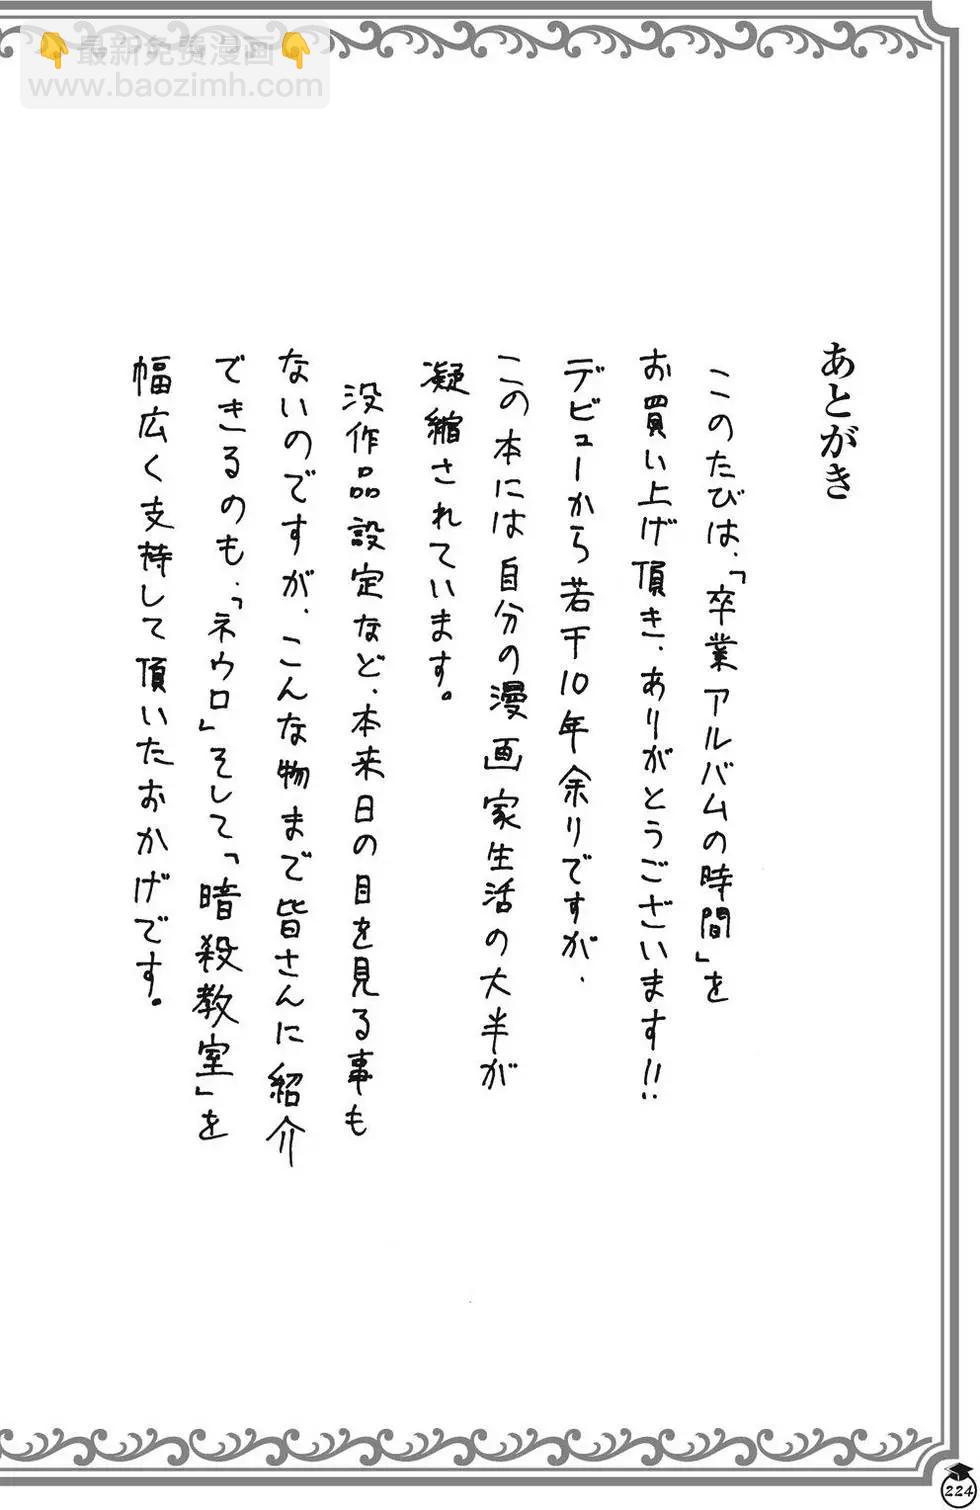 最新免费漫画
www.baozimh.com
あとがき
このたびは、「卒業アルバムの時間」を
お買い上げ頂き、ありがとうございます!!
デビューから若干10年余りですが、
この本には自分の漫画家生活の大半が
凝縮されています。
没作品設定など、本来日の目を見る事も
ないのですが、こんな物まで皆さんに紹介
できるのも、「ネウロ」そして「暗殺教室」を
幅広く支持して頂いたおかげです。
224